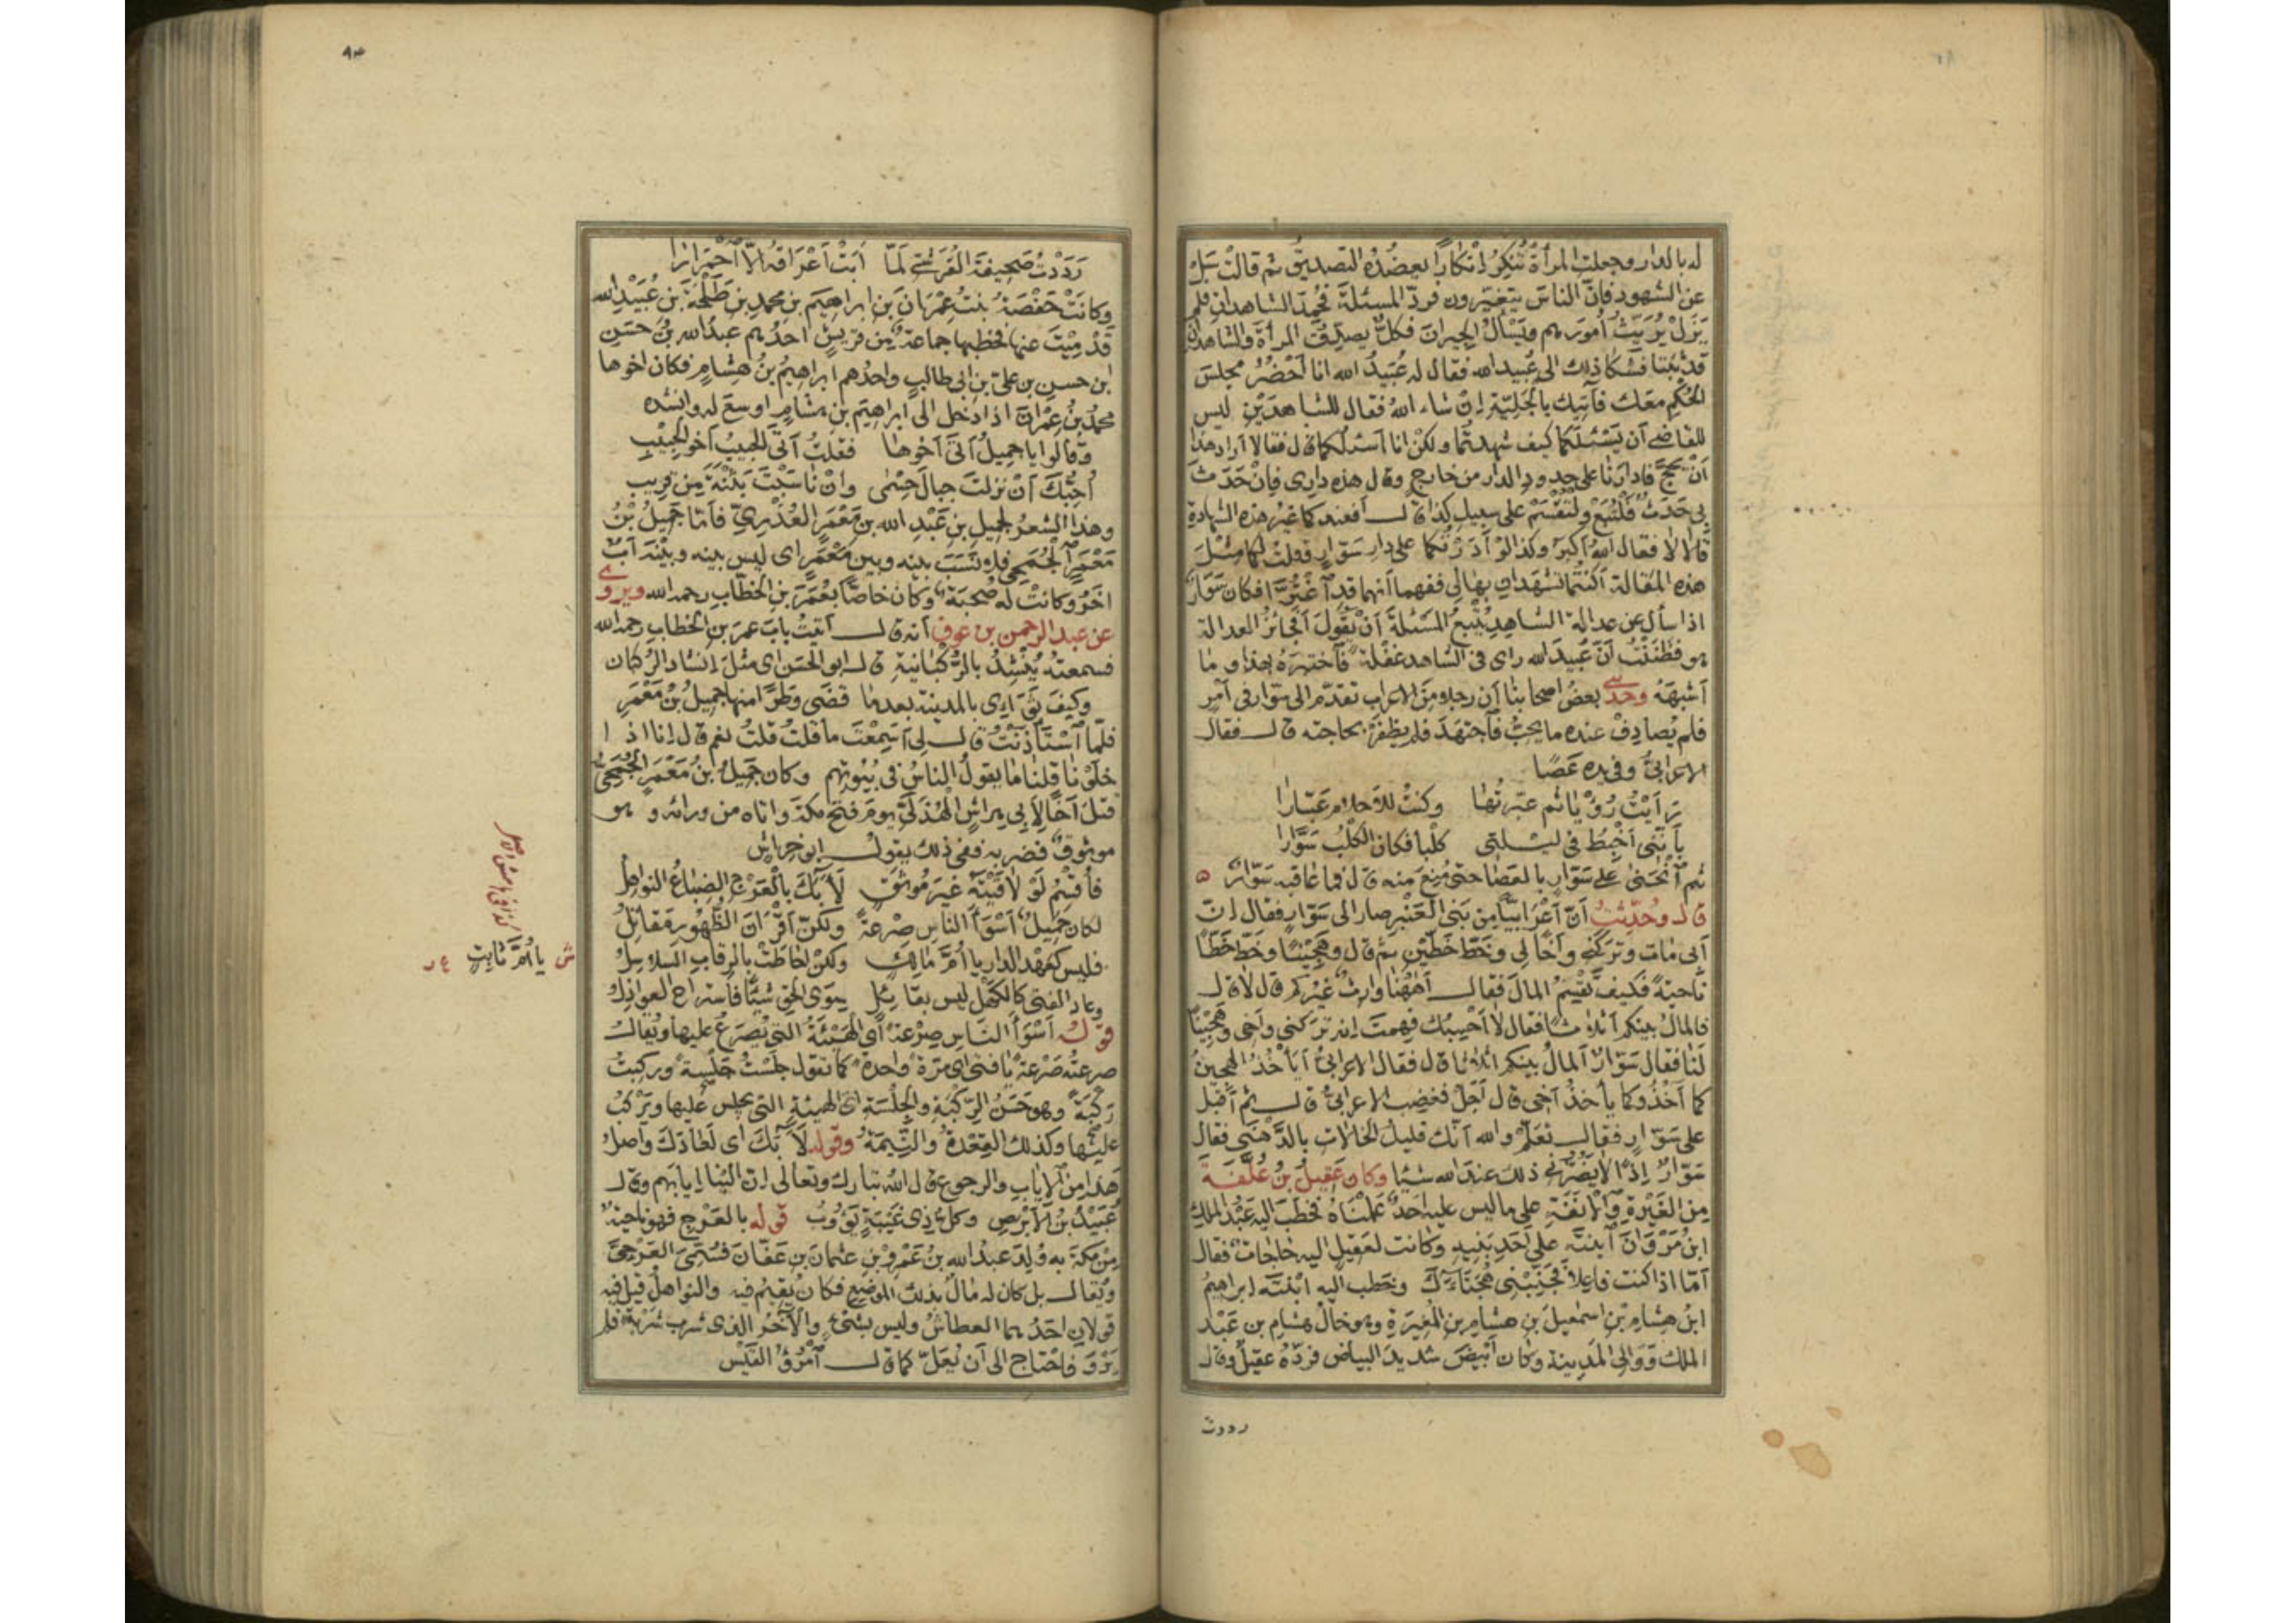 له بالدار وجعلت المرأة تنكر إنكارا يعضده التصديق ثم قالت سل
عن الشهود فان الناس يتغيرون فرد المسئلة فحمد الشاهدان فلم
يزل يريث أمورهم ويسأل الجيران فكل يصدق المرأة والشاهدان
قد ثبتا فشكا ذلك الى عبيد الله فقال له عبيد الله انا أحضر مجلس
الحكم معك فآتيك بالجلية إن شاء الله فقال للشاهدين ليس
للقاضي أن يسئلكما كيف شهدتما ولكن انا أسئلكما قال فقالا أراد هذا
أن يحج فادارنا على حدود الدار من خارج وقال هذه داري فإن حدث
بي حدث فلتبع ولتقسم على سبيل كذا قال أفعندكما غير هذه الشهادة
قالا لا فقال الله أكبر وكذا لو أدرتكما على دار سوار فقلت لكما مثل
هذه المقالة أكنتما تشهدان بها لي ففهما أنهما قد اغترا فكان سوار
اذا سأل عن عدالة الشاهد يتبع المسئلة أن يقول أفجائز العدالة
هو فظننت أن عبيد الله رأى في الشاهد غفلة فاختبره بهذا وما
أشبهه وحدثني بعض أصحابنا أن رجلا من الاعراب تقدم الى سوار في أمر
فلم يصادف عنده ما يحب فاجتهد فلم يظفر بحاجته قال فقال
الاعرابي وفي يده عصا
رأيت رؤيا ثم عبرتها وكنت للأحلام عبارا
بأنني أخبط في ليلتي كلبا فكان الكلب سوارا
ثم انحنى على سوار بالعصا حتى منع منه قال فما عاقبه سوار ه
قال وحدثت أن أعرابيا من بني العنبر صار الى سوار فقال إن
أبي مات وتركني وأخا لي وخط خطين ثم قال وهجينا وخط خطا
ناحية فكيف نقسم المال فقال أههنا وارث غيركم قال لا قال
فالمال بينكم أثلاثا فقال لا أحسبك فهمت إنه تركني وأخي وهجينا
لنا فقال سوار المال بينكم أثلاثا قال فقال الاعرابي أيأخذ الهجين
كما آخذ وكما يأخذ أخي قال أجل فغضب الاعرابي قال ثم أقبل
على سوار فقال تعلم والله أنك قليل الخالات بالدهنى فقال
سوار إذا لا يضرني ذلك عند الله شيئا وكان عقيل بن علفة
من الغيرة والأنفة على ما ليس عليه أحد علمناه فخطب اليه عبد الملك
ابن مروان ابنته على أحد بنيه وكانت لعقيل اليه حاجات فقال
أما اذا كنت فاعلا فجنبني هجناءك وخطب اليه ابنته ابراهيم
ابن هشام بن اسمعيل بن هشام بن المغيرة وهو خال هشام بن عبد
الملك ووالي المدينة وكان أبيض شديد البياض فرده عقيل وقال
رددت
٩٣
رددت صحيفة القرشي لما أبت أعراقه إلا احمرارا
وكانت حفصة بنت عمران بن ابراهيم بن محمد بن طلحة بن عبيد الله
قد ميت عنها فخطبها جماعة من قريش احدهم عبد الله بن حسن
ابن حسن بن علي بن ابي طالب واحدهم ابراهيم بن هشام فكان اخوها
محمد بن عمران اذا دخل الى ابراهيم بن هشام اوسع له وانشده
وقالوا يا جميل أتى أخوها فقلت أتى الحبيب أخو الحبيب
أحبك أن نزلت جبال حسمى وأن ناسبت بثنة من قريب
وهذا الشعر لجميل بن عبد الله بن معمر العذري فأما جميل بن
معمر الجمحي فلا نسب بينه وبين معمر أي ليس بينه وبينه أب
آخر وكانت له صحبة وكان خاصا بعمر بن الخطاب رحمه الله ويروى
عن عبد الرحمن بن عوف أنه قال أتيت باب عمر بن الخطاب رحمه الله
فسمعته ينشد بالركبانية قال ابو الحسن اي مثل إنشاد الركبان
وكيف ثواءي بالمدينة بعدما قضى وطرا منها جميل بن معمر
فلما استأذنت قال لي أسمعت ما قلت قلت نعم قال إنا اذا
خلونا قلنا ما يقول الناس في بيوتهم وكان جميل بن معمر الجمحي
قتل أخا لأبي خراش الهذلي يوم فتح مكة واتاه من ورائه وهو
موثوق فضربه ففي ذلك يقول ابو خراش
فأقسم لو لاقيته غير موثق لآبك بالعرج الضباع النواهل
لكان جميل أسوأ الناس صرعة ولكن أقران الظهور مقاتل
فليس كعهد الدار يا أم مالك ولكن احاطت بالرقاب السلاسل
وعاد الفتى كالكهل ليس بقائل سوى الحق شيئا فاستراح العواذل
قوله أسوأ الناس صرعة أي الهيئة التي يصرع عليها ويقال
صرعته صرعة يا فتى اي مرة واحدة كما تقول جلست جلسة وركبت
ركبة وهو حسن الركبة والجلسة اي الهيئة التي يجلس عليها ويركب
عليها وكذلك القعدة والنيمة وقوله لآبك اي لعاذك وأصل
هذا من الإياب والرجوع قال الله تبارك وتعالى إن الينا إيابهم وقال
عبيد بن الأبرص وكل ذي غيبة يؤوب قوله بالعرج فهو ناحية
من مكة به ولد عبد الله بن عمرو بن عثمان بن عفان فسمي العرجي
ويقال بل كان له مال بذلك الموضع فكان يقيم فيه والنواهل قيل فيه
قولان احدهما العطاش وليس بشيء والآخر الذي شرب شربة فلم
يرو فاحتاج الى أن يعل كما قال امرؤ القيس
ش يا أم ثابت